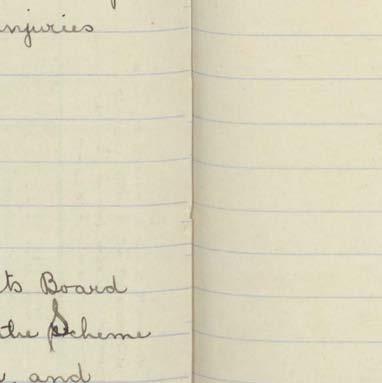 injuries
ts Board
the Scheme
and